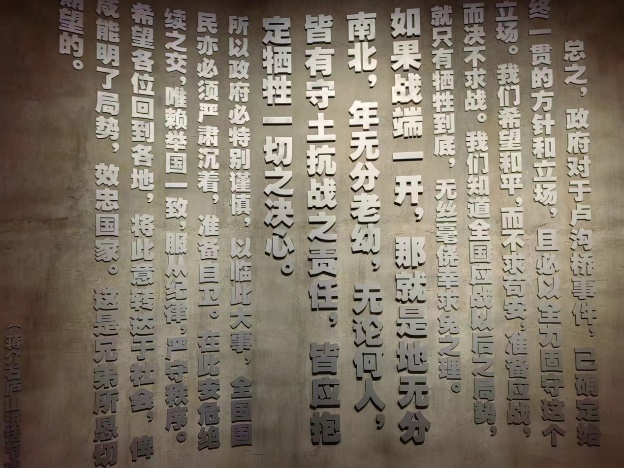 总之，政府对于卢沟桥事件，已确定始
终一贯的方针和立场，且必以全力固守这个
立场。我们希望和平，而不求苟安，准备应战，
而决不求战。我们知道全国应战以后之局势，
就只有牺牲到底，无丝毫侥幸求免之理。
如果战端一开，那就是地无分
南北，年无分老幼，无论何人，
皆有守土抗战之责任，皆应抱
定牺牲一切之决心。
所以政府必特别谨慎，以临此大事，全国国
民亦必须严肃沉着，准备自卫。在此安危绝
续之交，唯赖举国一致，服从纪律，严守秩序。
希望各位回到各地，将此意转达于社会，俾
咸能明了局势，效忠国家。这是兄弟所恳切
期望的。
（蒋介石庐山